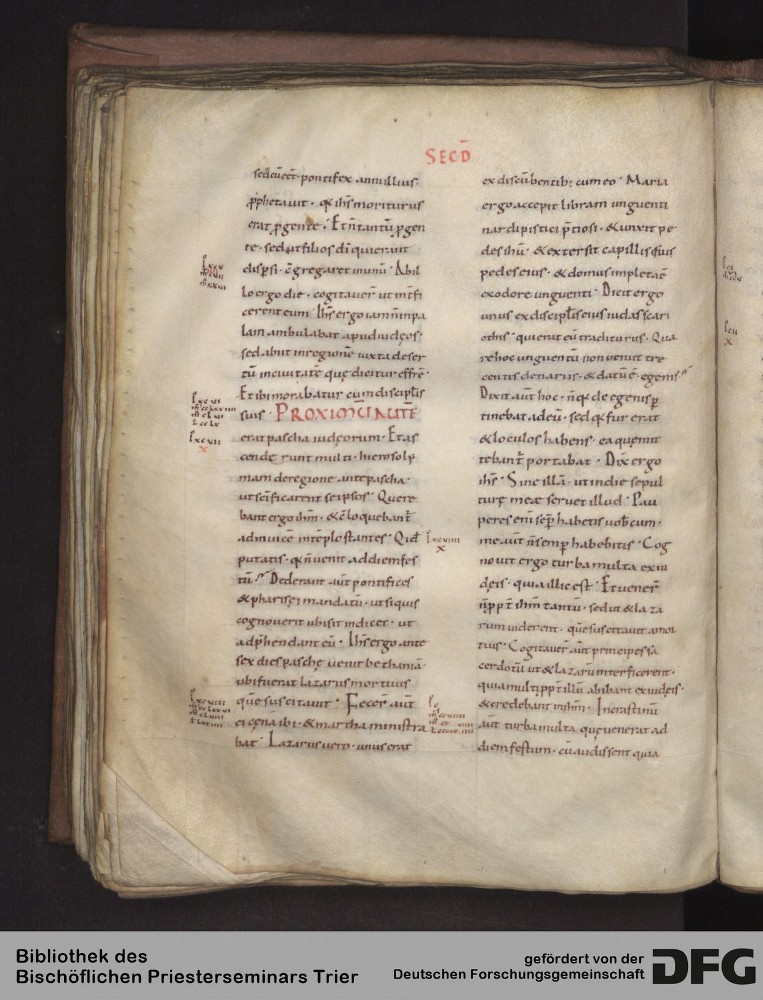 SECD̄
sed cū eēt pontifex anni illius
ꝓphetauit · qđ ihs moriturus
erat ꝓ gente · Et ñ tantū ꝓ gen
te · sed ut filios dī qui erant
disꝑsi · c̄gregaret in unū · Ab il
lo ergo die · cogitauer̄ ut int̄fi
cerent eum · Ihs ergo iam ñ in pa
lam ambulabat apud iudęos ·
sed abiit in regionē iuxta deser
tū in ciuitatē quę dicitur effrē ·
Et ibi morabatur cum discipłis
suis · PROXIMŪ AUTĒ
erat pascha iudęorum · Et as
cenderunt multi · hierosolẏ
mam de regione · ante pascha ·
ut sc̄ificarent se ipsos · Quere
bant ergo ihm̄ · & c̄loquebant̄
ad inuicē in tēplo stantes · Quid
putatis · qa ñ uenit ad diem fes
tū · Dederant aūt pontifices
& pharisei mandatū · ut si quis
cognouerit ubi sit indicet · ut
adp̄hendant eū · Ihs ergo ante
sex dies paschę uenit bethaniā
ubi fuerat lazarus mortuus
quē suscitauit · Fecer̄ aūt
ei cęnā ibi · & martha ministra
bat · Lazarus uero · unus erat
ex discūbentib; cum eo · Maria
ergo accepit libram unguenti
nardi pistici p̄tiosi · & unxit pe
des ihū · & extersit capillis suis
pedes eius · & domus impleta ē
ex odore unguenti · Dicit ergo
unus ex discipłis eius iudas scari
othis · qui erat eū traditurus · Qua
re hoc unguentū non uenit tre
centis denariis · & datū ē egenis
Dixit aūt hoc · ñ qa de egenis ꝑ
tinebat ad eū · sed qa fur erat
& loculos habens · ea quę mit
tebant̄ portabat · Dix̄ ergo
ihs · Sine illā · ut in die sepul
turę meę seruet illud · Pau
peres enī sēp habetis uobcum ·
me aūt ñ semp habebitis · Cog
nouit ergo turba multa ex iu
dęis · quia illic est · Et uener̄
ñ ꝓpt̄ ihm̄ tantū · sed ut & laza
rum uiderent · quē suscitauit a mor
tuis · Cogitauer̄ aūt principes sa
cerdotū ut & lazarum interficerent ·
quia multi ꝓpt̄ illū abibant ex iudęis ·
& credebant in ihm̄ · In crastinū
aūt turba multa quę uenerat ad
diem festum · cū audissent quia
Bibliothek des
Bischöflichen Priesterseminars Trier
gefördert von der
Deutschen Forschungsgemeinschaft
DFG